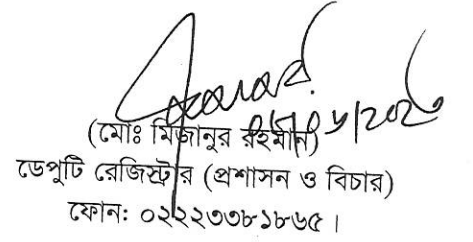 (মোঃ মিজানুর রহমান)
ডেপুটি রেজিস্ট্রার (প্রশাসন ও বিচার)
ফোন: ০২২২৩৩৮১৮৬৫।